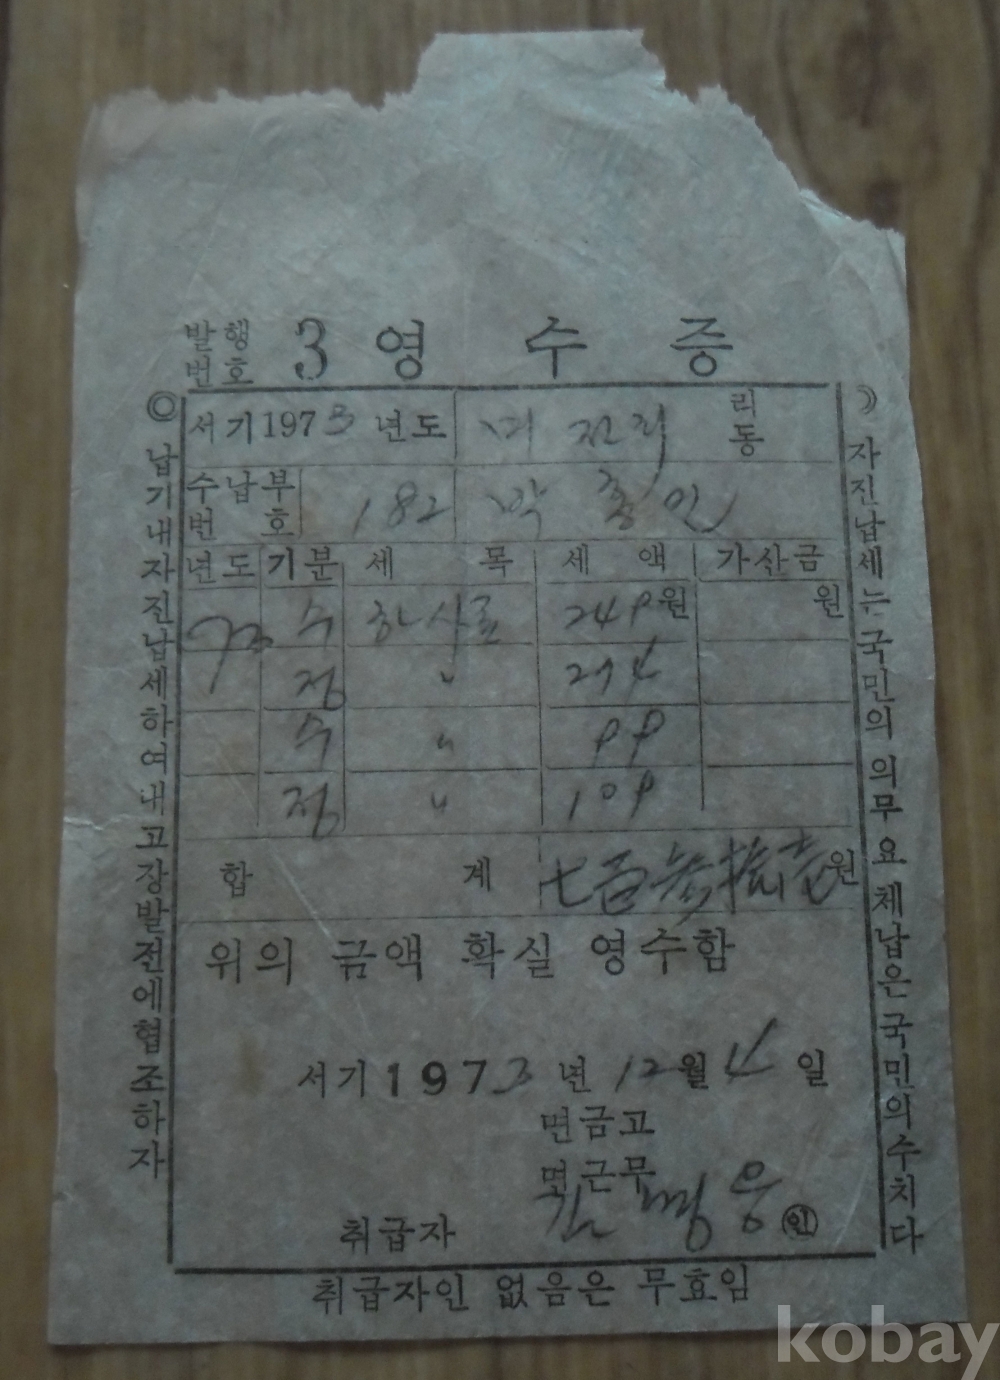 발행번호 3 영 수 증
서기 1973 년도 리동
수납부번호 182 박 종 인
년도 기분 세 목 세 액 가산금
73 수 하사료 249 원 원
정 〃 274
수 〃 99
정 〃 109
합 계 七百參拾壱 원
위의 금액 확실 영수함
서기 1973 년 12 월 4 일
면금고
면근무
취급자 명 웅 인
취급자인 없음은 무효임
◎ 납기내자진납세하여내고장발전에협조하자
자진납세는국민의의무요체납은국민의수치다
kobay